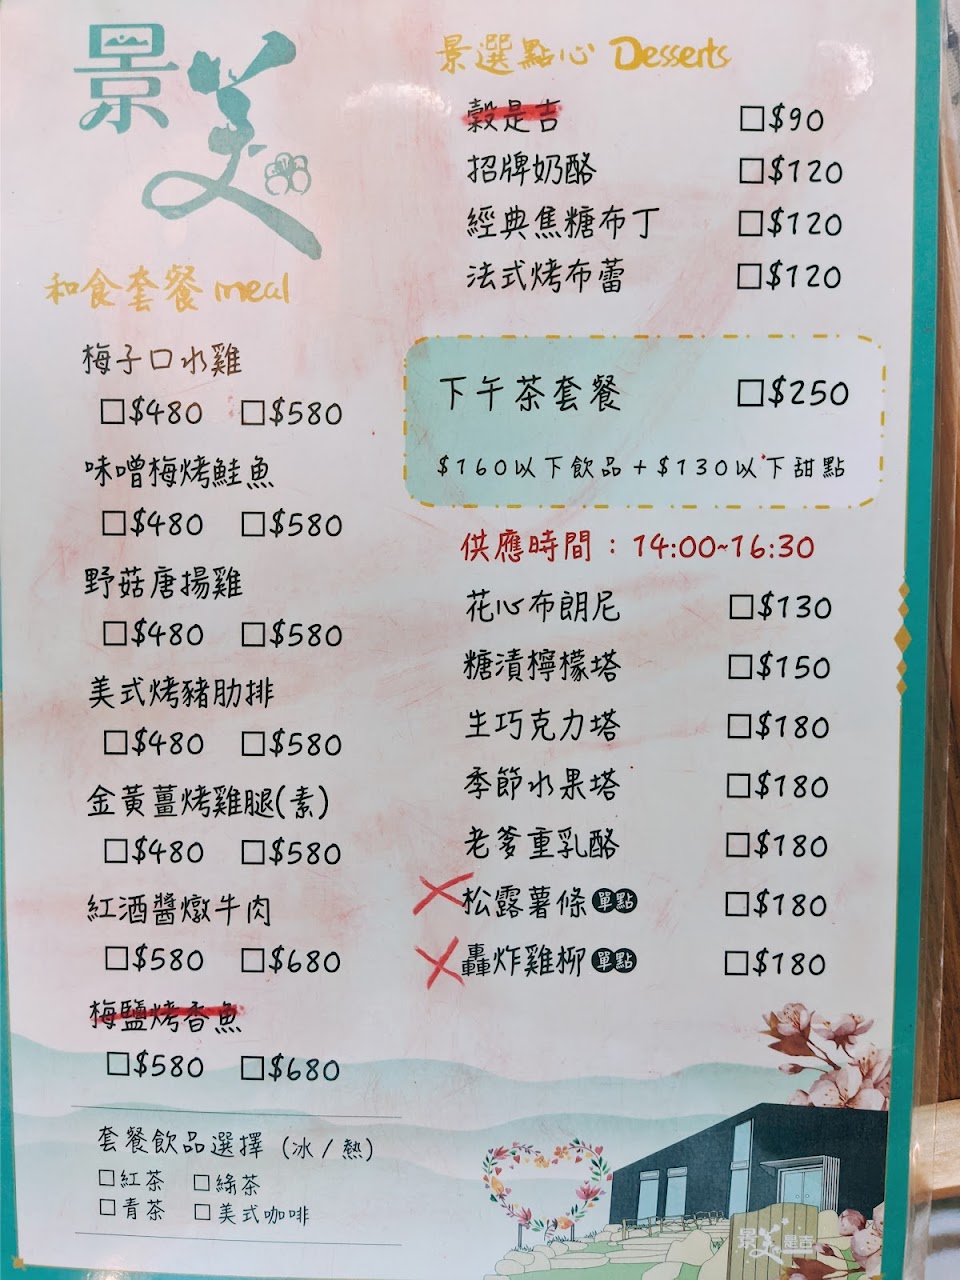 景美
和食套餐 meal
梅子口水雞
□$480 □$580
味噌梅烤鮭魚
□$480 □$580
野菇唐揚雞
□$480 □$580
美式烤豬肋排
□$480 □$580
金黃薑烤雞腿(素)
□$480 □$580
紅酒醬燉牛肉
□$580 □$680
梅鹽烤香魚
□$580 □$680
套餐飲品選擇 (冰/熱)
□紅茶 □綠茶
□青茶 □美式咖啡
景選點心 Desserts
穀是吉 □$90
招牌奶酪 □$120
經典焦糖布丁 □$120
法式烤布蕾 □$120
下午茶套餐 □$250
$160以下飲品+$130以下甜點
供應時間：14:00~16:30
花心布朗尼 □$130
糖漬檸檬塔 □$150
生巧克力塔 □$180
季節水果塔 □$180
老爹重乳酪 □$180
松露薯條 單點 □$180
轟炸雞柳 單點 □$180
景美是吉